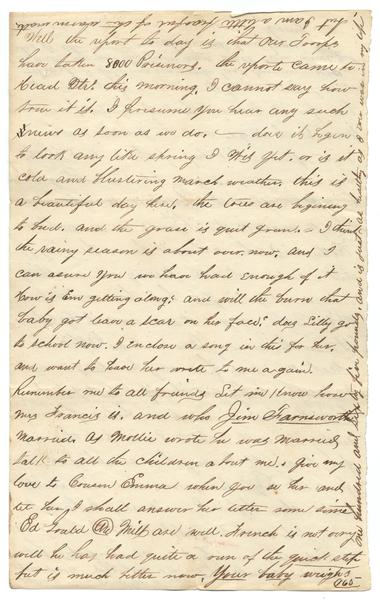 Well the report to day is that Our Troops
have taken 8000 Prisoners. the reports came to
Head Qtr's this morning, I cannot say how
true it is. I presume you hear any such
news as soon as we do. — does it begin
to look any like spring I Wis yet. or is it
cold and blustering march weather. this is
a beautiful day here. the trees are begining
to bud. and the grass is quit green. — I think
the rainy season is about over now. and I
can asure you we have had enough of it
how is Em getting along? and will the burn that
baby got leave a scar on her face? does Lilly go
to school now. I enclose a song in this for her.
and want to have her write to me again.
Remember me to all friends. Let me know how
Mrs Francis is. and who Jim Farnsworth
Married. As Mollie wrote he was Married,
talk to all the children about me. Give my
love to Cousin Emma when you see her and
tel her I shall answer her letter some time
Ed Gould & Milt are well. French is not very
well he has had quite a run of the quick step
but is much better now. Your baby weighs
165
one hundred and sixty five pounds, and is just as healthy as I ever was in my life
but I am a little heavier of the